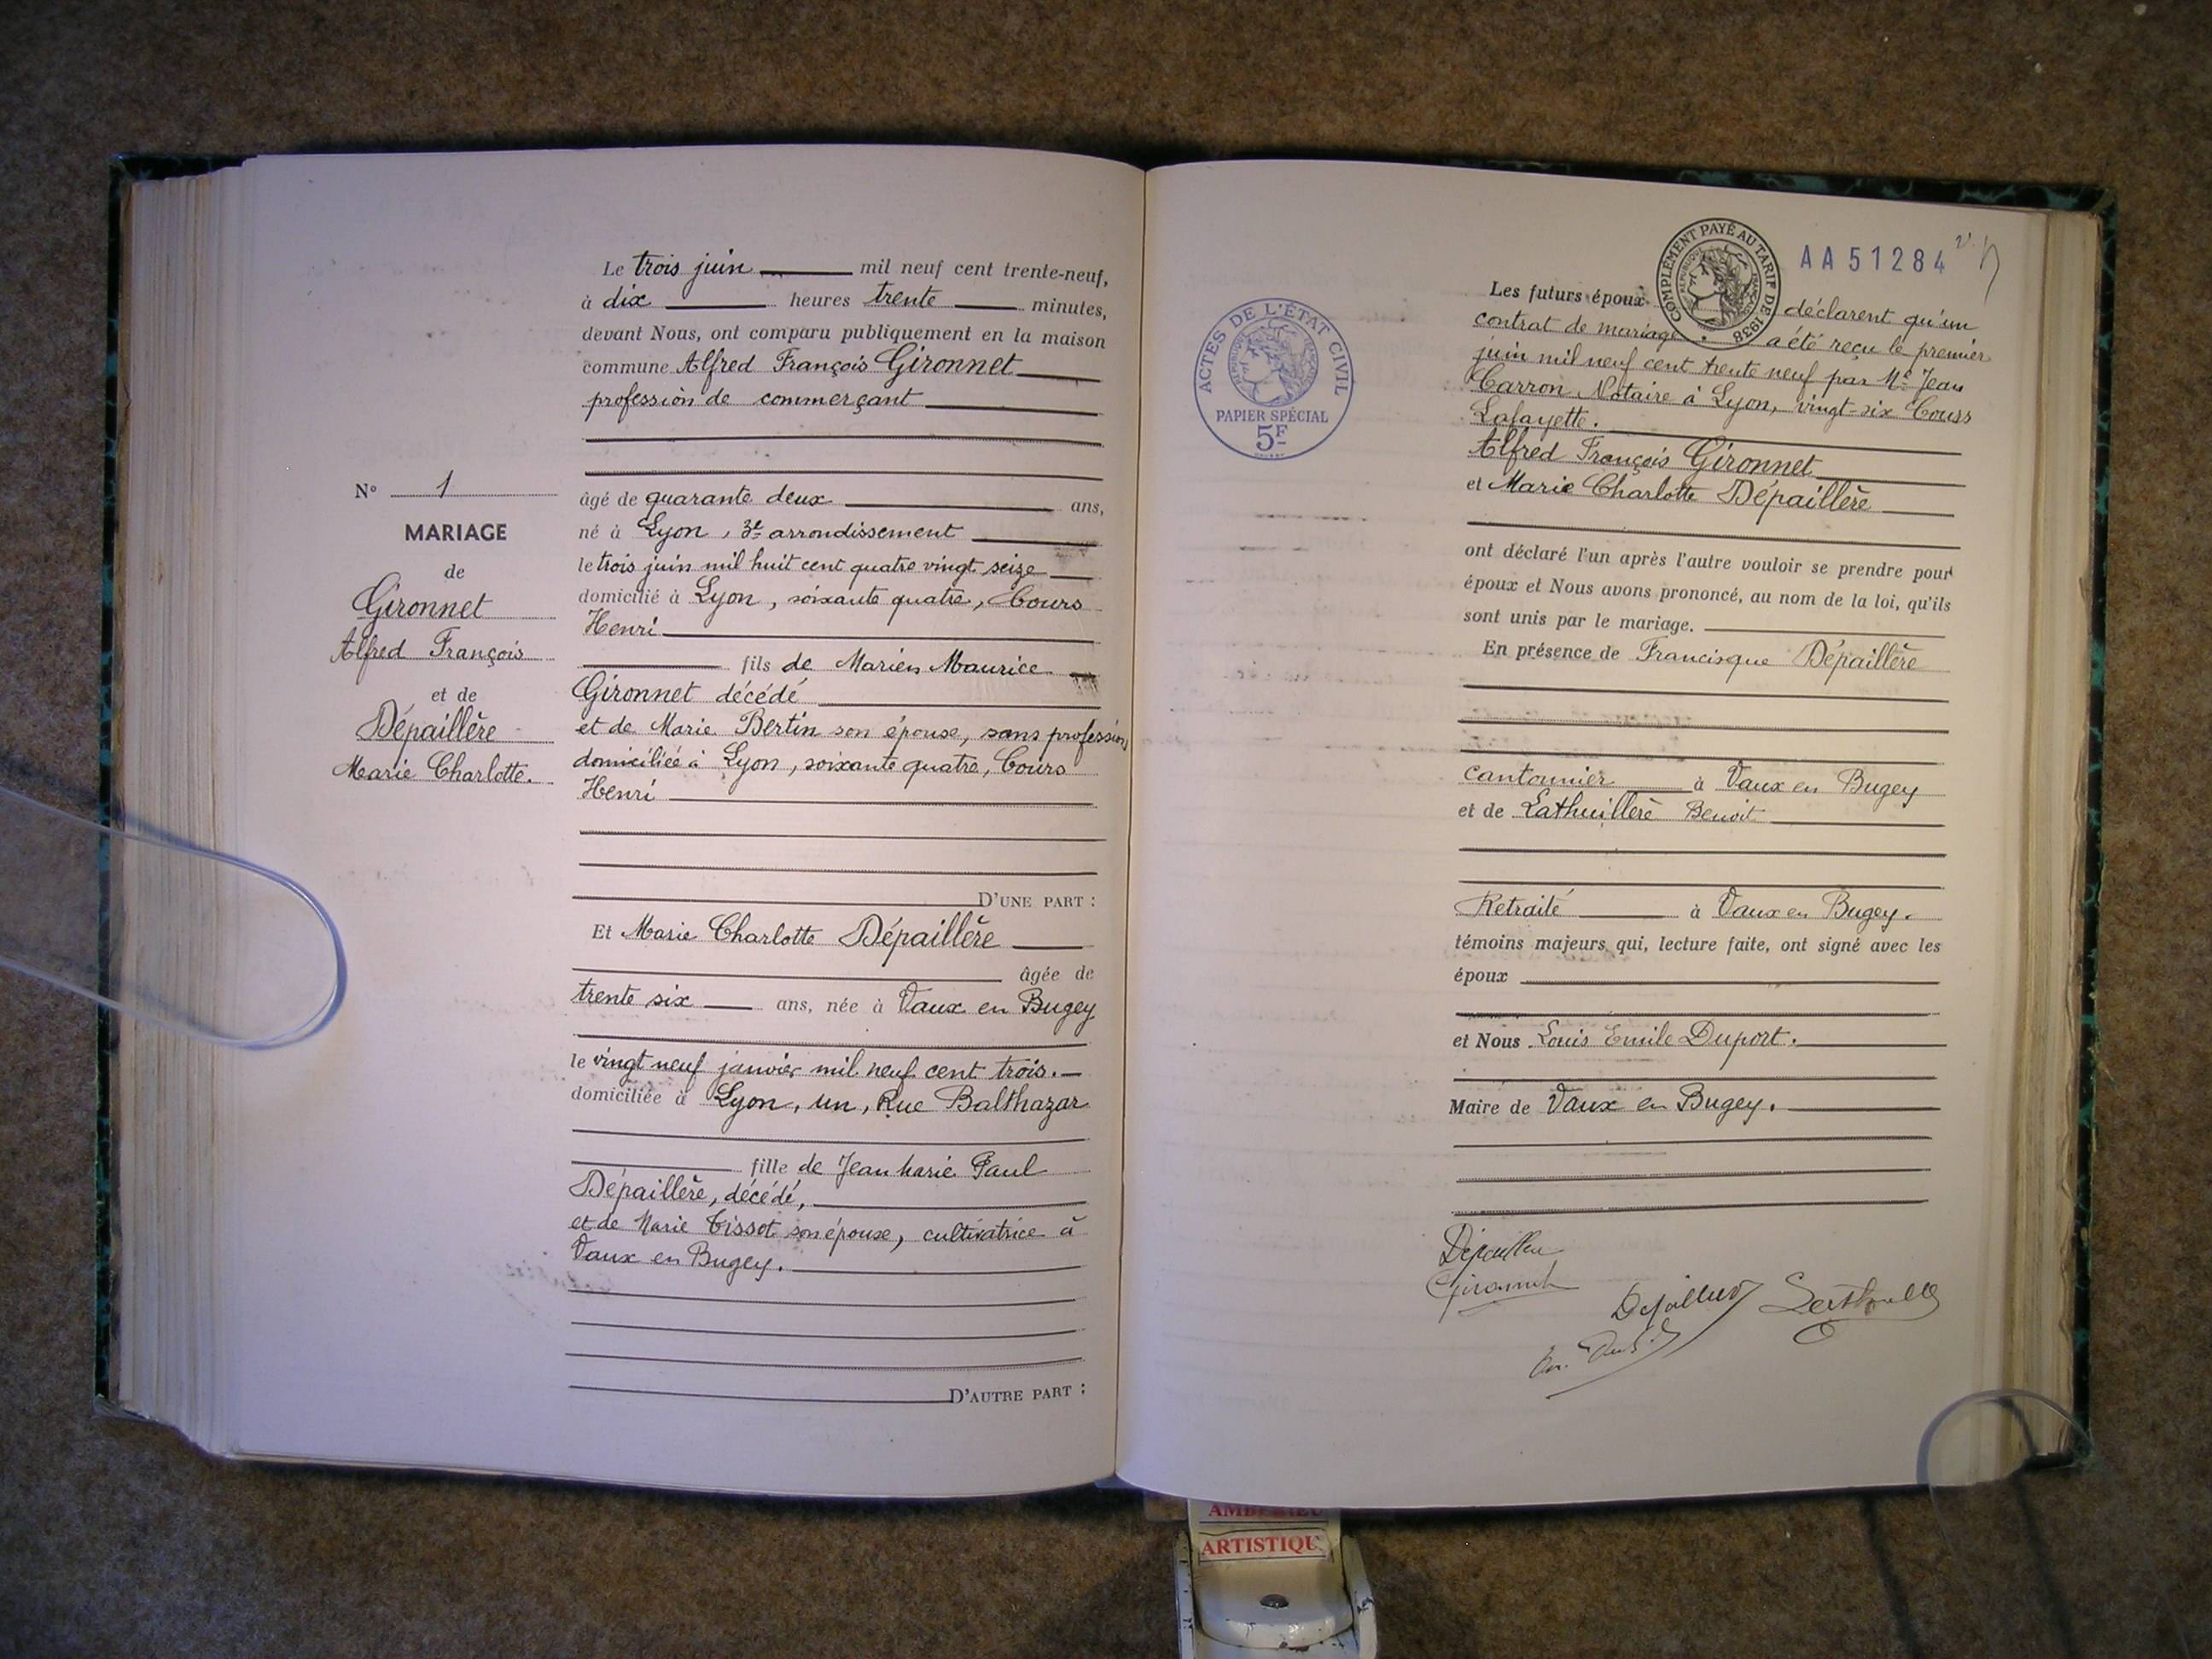 Le trois juin mil neuf cent trente-neuf,
à dix heures trente minutes,
devant Nous, ont comparu publiquement en la maison
commune Alfred François Gironnet
profession de commerçant
N° 1
MARIAGE
de
Gironnet
Alfred François
et de
Dépaillère
Marie Charlotte.
âgé de quarante deux ans,
né à Lyon, 3e arrondissement
le trois juin mil huit cent quatre vingt seize
domicilié à Lyon, soixante quatre, Cours
Henri
fils de Marien Maurice
Gironnet décédé
et de Marie Bertin son épouse, sans profession,
domiciliée à Lyon, soixante quatre, Cours
Henri
D'UNE PART :
Et Marie Charlotte Dépaillère
âgée de
trente six ans, née à Vaux en Bugey
le vingt neuf janvier mil neuf cent trois.
domiciliée à Lyon, un, Rue Balthazar
fille de Jean Marie Paul
Dépaillère, décédé,
et de Marie Tissot son épouse, cultivatrice à
Vaux en Bugey.
D'AUTRE PART :
ACTES DE L'ÉTAT CIVIL
RÉPUBLIQUE FRANÇAISE
PAPIER SPÉCIAL
5F
COMPLÉMENT PAYÉ AU TARIF DE 1938
RÉPUBLIQUE FRANÇAISE
AA51284
Les futurs époux déclarent qu'un
contrat de mariage a été reçu le premier
juin mil neuf cent trente neuf par Me Jean
Carron Notaire à Lyon, vingt-six Cours
Lafayette.
Alfred François Gironnet
et Marie Charlotte Dépaillère
ont déclaré l'un après l'autre vouloir se prendre pour
époux et Nous avons prononcé, au nom de la loi, qu'ils
sont unis par le mariage.
En présence de Francisque Dépaillère
cantonnier à Vaux en Bugey
et de Lathuillère Benoit
Retraité à Vaux en Bugey.
témoins majeurs qui, lecture faite, ont signé avec les
époux
et Nous Louis Emile Duport.
Maire de Vaux en Bugey.
Gironnet
AMBÉRIEU
ARTISTIQU